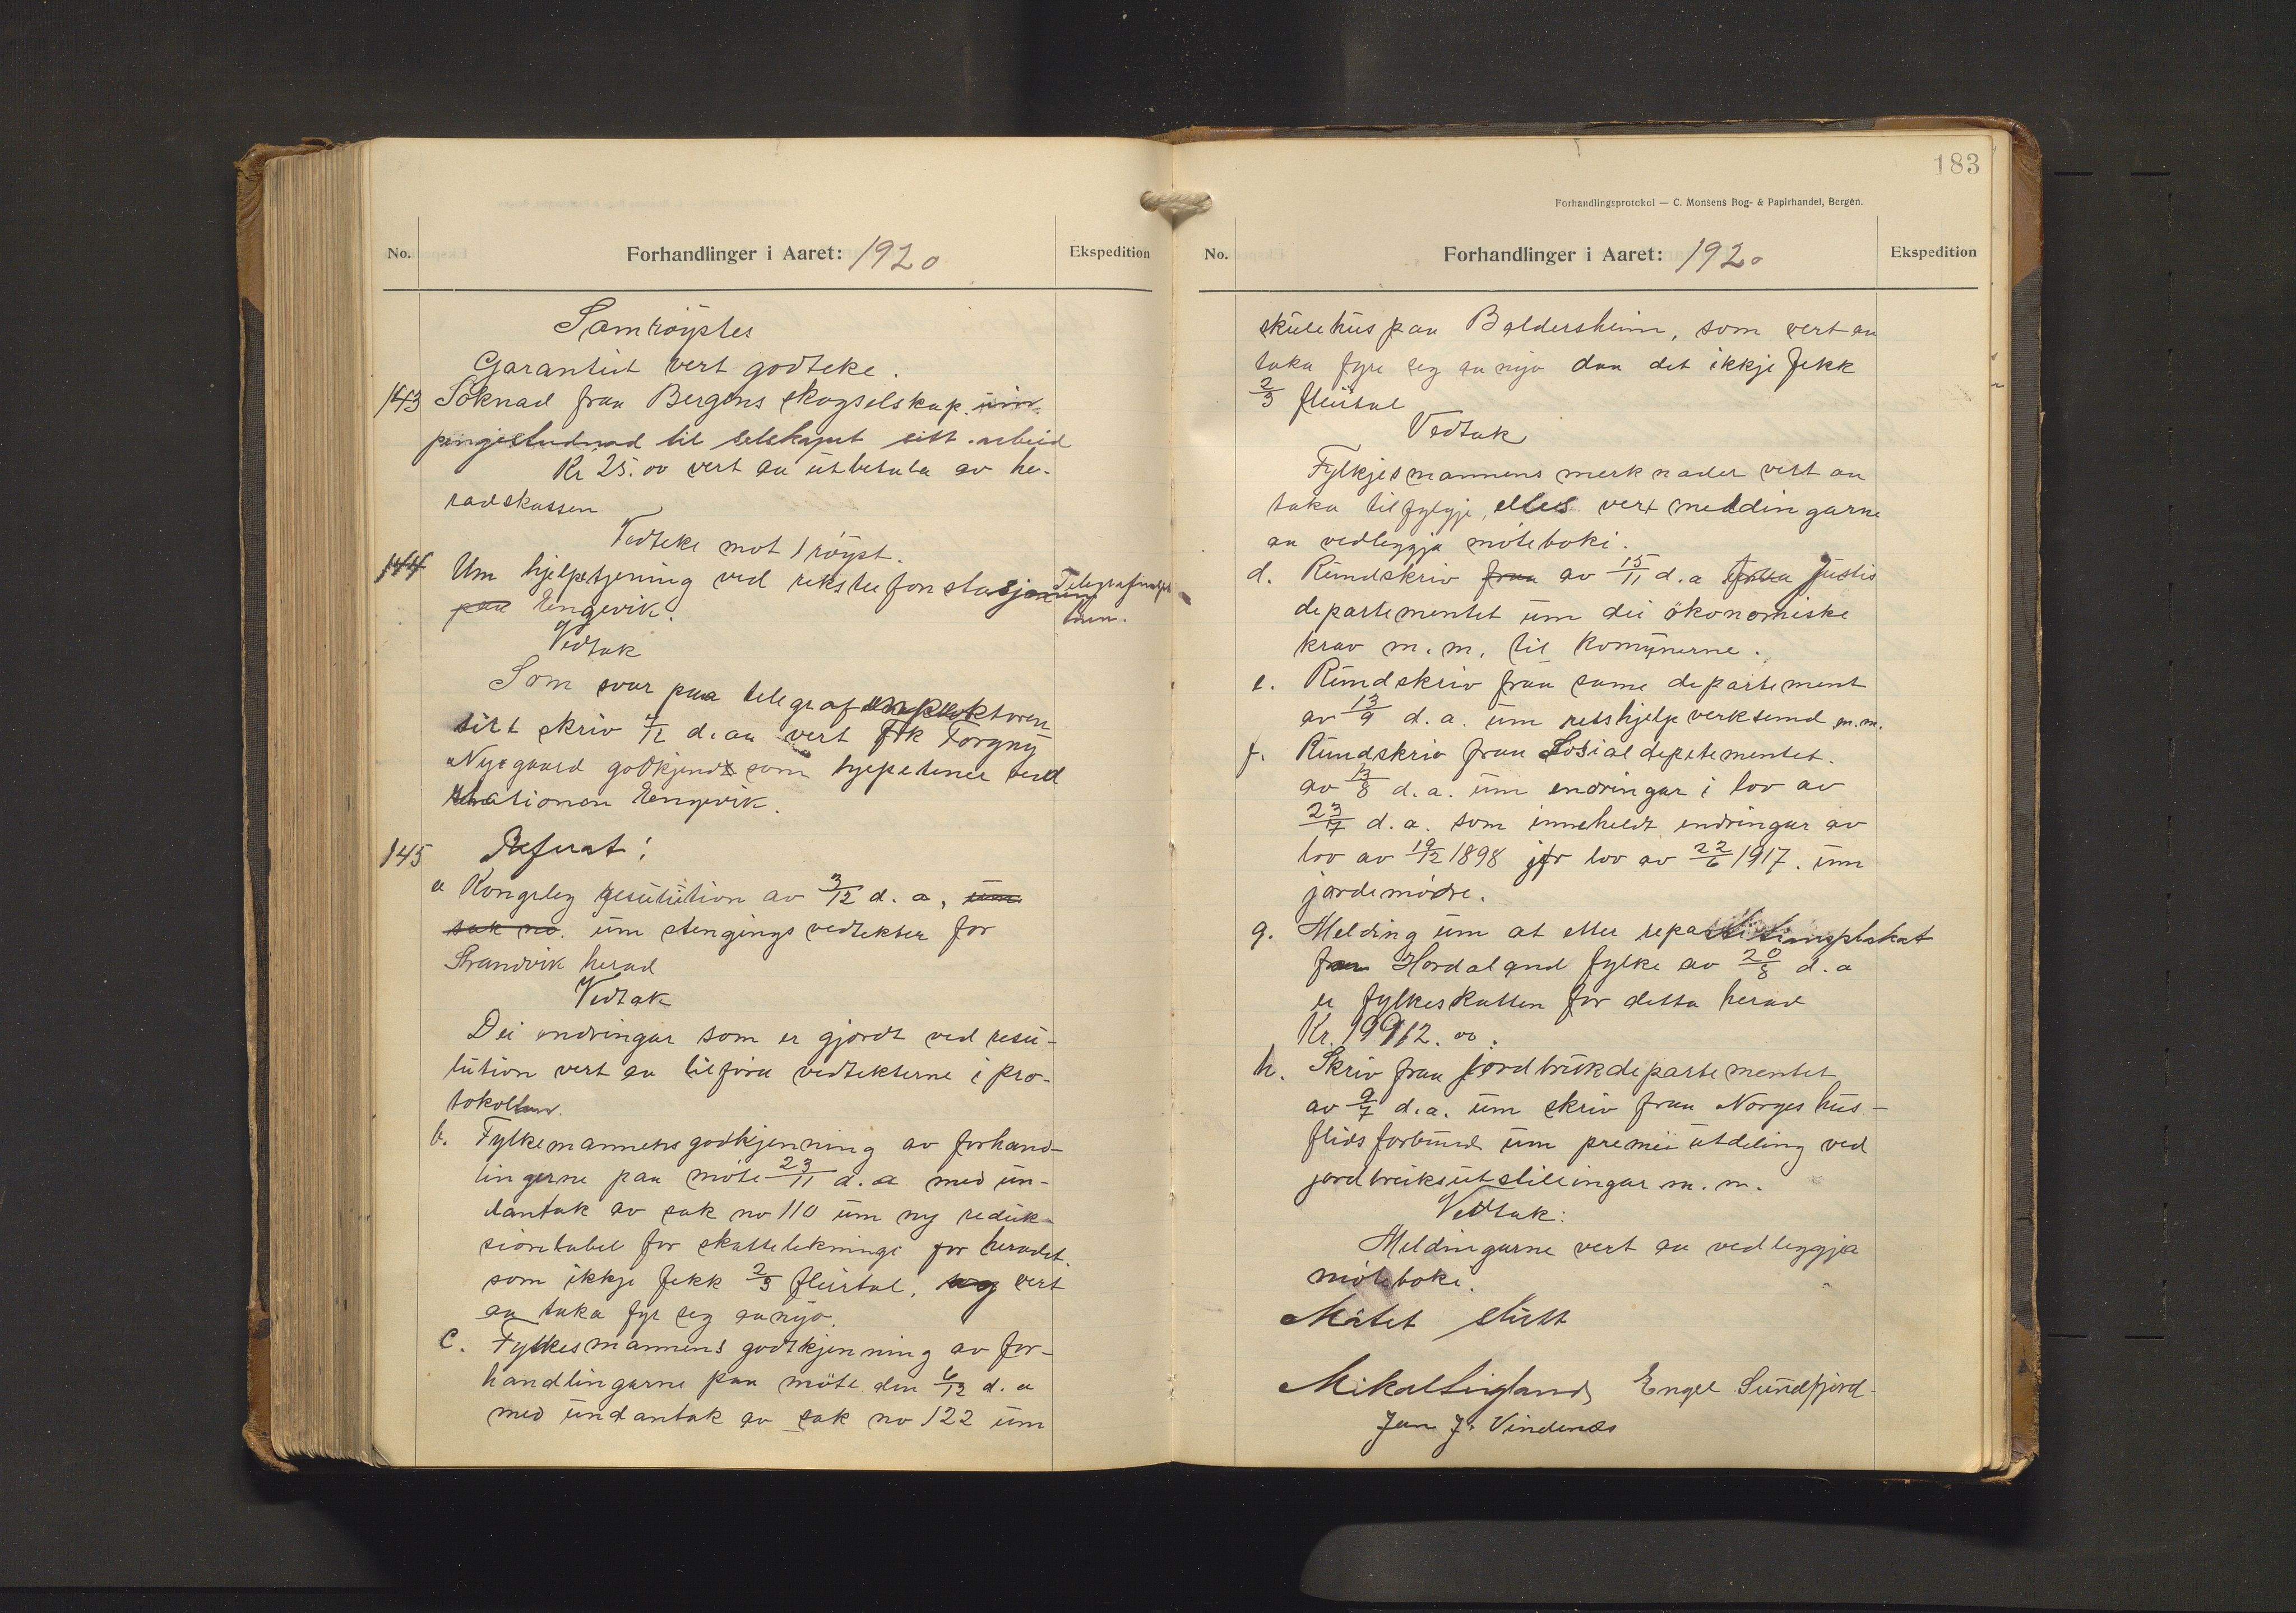 No.
Forhandlinger i Aaret: 1920
Ekspedition
Samröystes
Garantiet vert godteke.
143 Söknad fraa Bergens skogselskap. um
pengestudnad til selskapet sitt arbeid
Kr 25.00 vert aa utbetala av he-
radskassen
Vedteke mot 1 röyst.
144 Um hjelpetjening ved rikstelefonstasjonen
Telegrafinspek
tören.
paa Engevik.
Vedtak
Som svar paa telegrafinspektoren
sitt skriv 4/12 d. aa vert Frk Torgny
Nygaard godkjendt som hjepetener ved
stationen Engevik.
145 Referat:
a Kongeleg resulution av 3/12 d. a, um
sak no. um stengings vedtekter for
Strandvik herad
Vedtak
Dei endringar som er gjordt ved resu-
lution vert aa tilföra vedtekterne i pro-
tokollen.
b. Fylkemannens godkjenning av forhand-
lingerne paa möte 23/11 d. a med un-
dantak av sak no 110 um ny reduk-
sionstabel for skattelikningi for heradet.
som ikkje fekk 2/3 fleirtal, og vert
aa taka fyr seg aa nyo.
c. Fylkesmannens godtkjenning av for-
handlingarne paa möte den 6/12 d. a
med undantak av sak no 122 um
183
Forhandlingsprotokol — C. Monsens Bog- & Papirhandel, Bergen.
No.
Forhandlinger i Aaret: 1920
Ekspedition
skulehus paa Baldersheim, som vert aa
taka fyre seg aa nyo daa det ikkje fekk
2/3 fleirtal
Vedtak
Fylkjesmannens merknader vert aa
taka tilfylgje, elles vert meldingarne
aa vedleggja möteboki.
d. Rundskriv fraa av 15/11 d. a fraa Justis
departementet um dei ökonomiske
krav m. m. til Komunerne.
e. Rundskriv fraa same departement
av 13/9 d. a. um retshjelp verksemd m. m.
f. Rundskriv fraa Sosialdepetementet.
av 13/8 d. a. um endringar i lov av
23/7 d. a. som inneheldt endringar av
lov av 19/12 1898 jfr lov av 22/6 1917. um
jordemödre.
g. Melding um at etter repartitionsplakat
fraa Hordaland fylke av 20/8 d. a
er fylkeskatten for detta herad
Kr. 19912.00.
h. Skriv fraa Jordbrukdepartementet
av 9/7 d. a. um skriv fraa Norges hus-
flids forbund um premii utdeling ved
jordbruksutstillingar m. m.
Vedtak:
Meldingarne vert aa vedleggja
möteboki.
Mötet slutt
Mikal Lygland Engel Sundfjord
Jan J. Vindenes